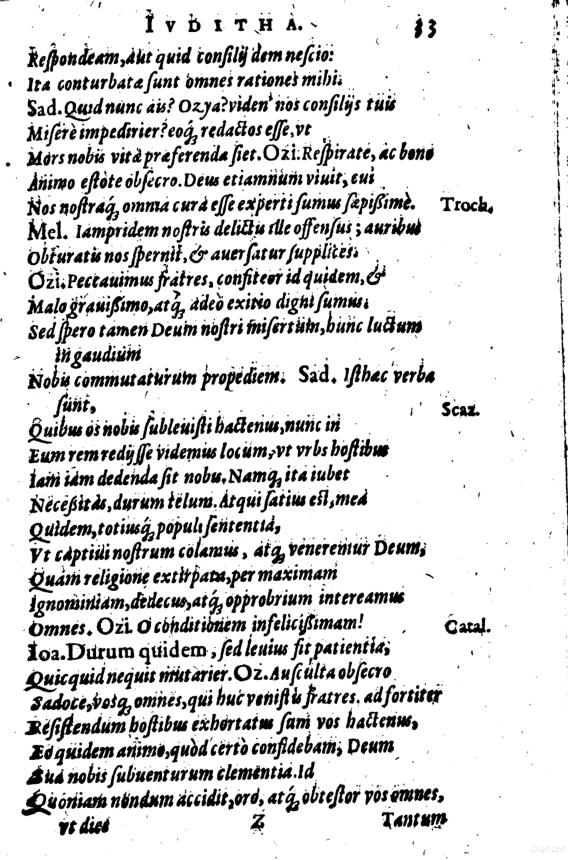 IVDITHA. 83
Respondeam, aut quid consilij dem nescio:
Ita conturbatæ sunt omnes rationes mihi.
Sad. Quid nunc ais? Ozya? viden' nos consilijs tuis
Miserè impedirier? eoq́; redactos esse, vt
Mors nobis vitæ præferenda siet. Ozi. Respirate, ac bono
Animo estote obsecro. Deus etiamnum viuit, cui
Nos nostraq́; omnia curæ esse experti sumus sæpißimè. Troch.
Mel. Iampridem nostris delictis ille offensus; auribus
Obturatis nos spernit, & auersatur supplices.
Ozi. Peccauimus fratres, confiteor id quidem, &
Malo grauißimo, atq́; adeò exitio digni sumus.
Sed spero tamen Deum nostri misertum, hunc luctum
in gaudium
Nobis commutaturum propediem. Sad. Isthæc verba
sunt,
Scaz.
Quibus os nobis subleuisti hactenus, nunc in
Eum rem redijsse videmus locum, vt vrbs hostibus
Iam iam dedenda sit nobis. Namq́; ita iubet
Neceßitas, durum telum. Atqui satius est, mea
Quidem, totiusq́; populi sententia,
Vt captiui nostrum colamus, atq́; veneremur Deum,
Quàm religione extirpata, per maximam
Ignominiam, dedecus, atq́; opprobrium intereamus
Omnes. Ozi. O conditionem infelicißimam! Catal.
Ioa. Durum quidem, sed leuius fit patientia,
Quicquid nequit mutarier. Oz. Ausculta obsecro
Sadoce, vosq́; omnes, qui huc venistis fratres. ad fortiter
Resistendum hostibus exhortatus sum vos hactenus,
Eo quidem animo, quòd certò confidebam, Deum
Sua nobis subuenturum clementia. Id
Quoniam nondum accidit, oro, atq́; obtestor vos omnes,
vt dies Z Tantum
Digitized